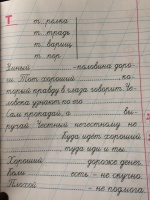 Т
т..релки
т..традь
т..варищ
т..пор
Умный ___ -половина доро-
ги. Тот хороший ___, ко-
торый правду в глаза говорит. Че-
ловека узнают по то___
Сам пропадай, а ___ вы-
ручай. Честный нечестному не
___. Куда идёт хороший ___,
туда иди и ты.
Хороший ___ дороже денег.
Коли ___ есть - не скучно.
Плохой ___ - не подмога.